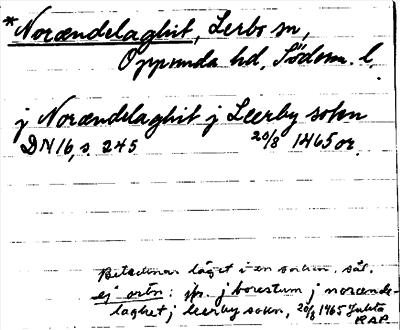 *Norændelaghit, Lerbo sn,
Oppunda hd, Södem. l.
j Norændelaghit j Leerby sokn
DN 16, s. 245 20/8 1465 or.
Betecknar läget i en socken, sål.
ej ortn: jfr. j borestum j norænde-
laghet j leerby sokn, 20/8 1465 Julita
RAP.